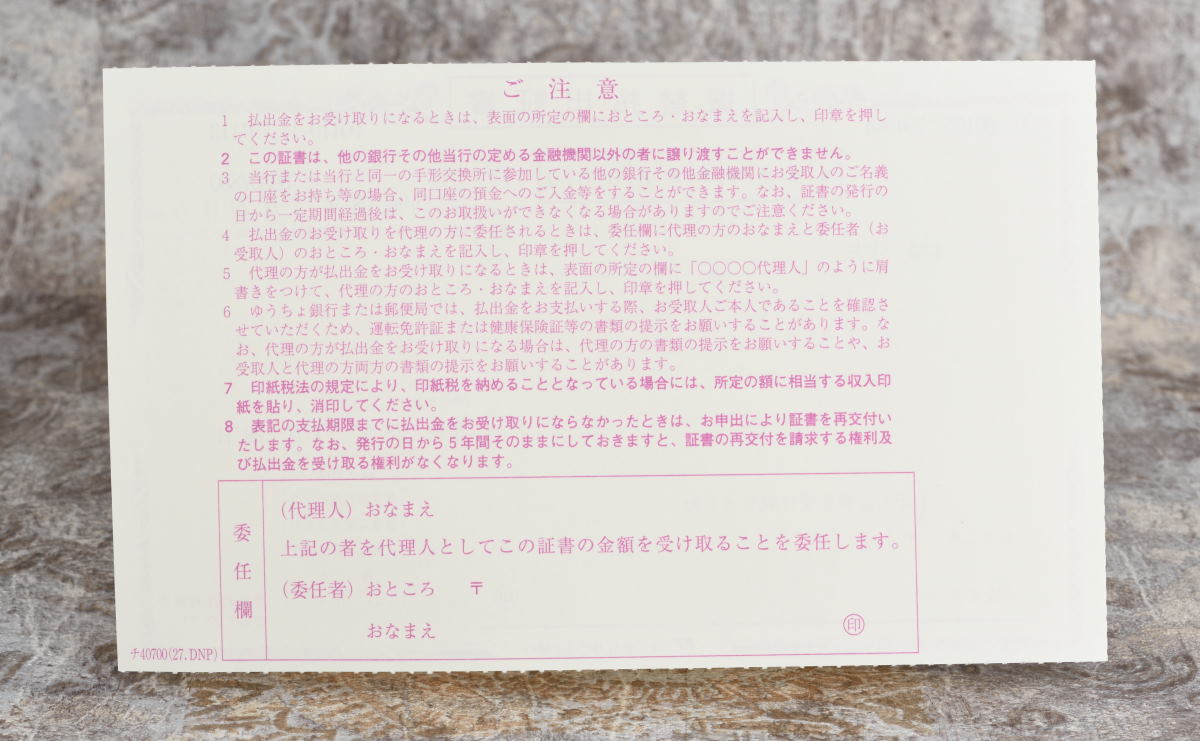 ご注意
1 払出金をお受け取りになるときは、表面の所定の欄におところ・おなまえを記入し、印章を押し
てください。
2 この証書は、他の銀行その他当行の定める金融機関以外の者に譲り渡すことができません。
3 当行または当行と同一の手形交換所に参加している他の銀行その他金融機関にお受取人のご名義
の口座をお持ち等の場合、同口座の預金へのご入金等をすることができます。なお、証書の発行の
日から一定期間経過後は、このお取扱いができなくなる場合がありますのでご注意ください。
4 払出金のお受け取りを代理の方に委任されるときは、委任欄に代理の方のおなまえと委任者（お
受取人）のおところ・おなまえを記入し、印章を押してください。
5 代理の方が払出金をお受け取りになるときは、表面の所定の欄に「〇〇〇〇代理人」のように肩
書きをつけて、代理の方のおところ・おなまえを記入し、印章を押してください。
6 ゆうちょ銀行または郵便局では、払出金をお支払いする際、お受取人ご本人であることを確認さ
せていただくため、運転免許証または健康保険証等の書類の提示をお願いすることがあります。な
お、代理の方が払出金をお受け取りになる場合は、代理の方の書類の提示をお願いすることや、お
受取人と代理の方両方の書類の提示をお願いすることがあります。
7 印紙税法の規定により、印紙税を納めることとなっている場合には、所定の額に相当する収入印
紙を貼り、消印してください。
8 表記の支払期限までに払出金をお受け取りにならなかったときは、お申出により証書を再交付い
たします。なお、発行の日から5年間そのままにしておきますと、証書の再交付を請求する権利及
び払出金を受け取る権利がなくなります。
委任欄
（代理人）おなまえ
上記の者を代理人としてこの証書の金額を受け取ることを委任します。
（委任者）おところ 〒
おなまえ ㊞
チ40700(27.DNP)